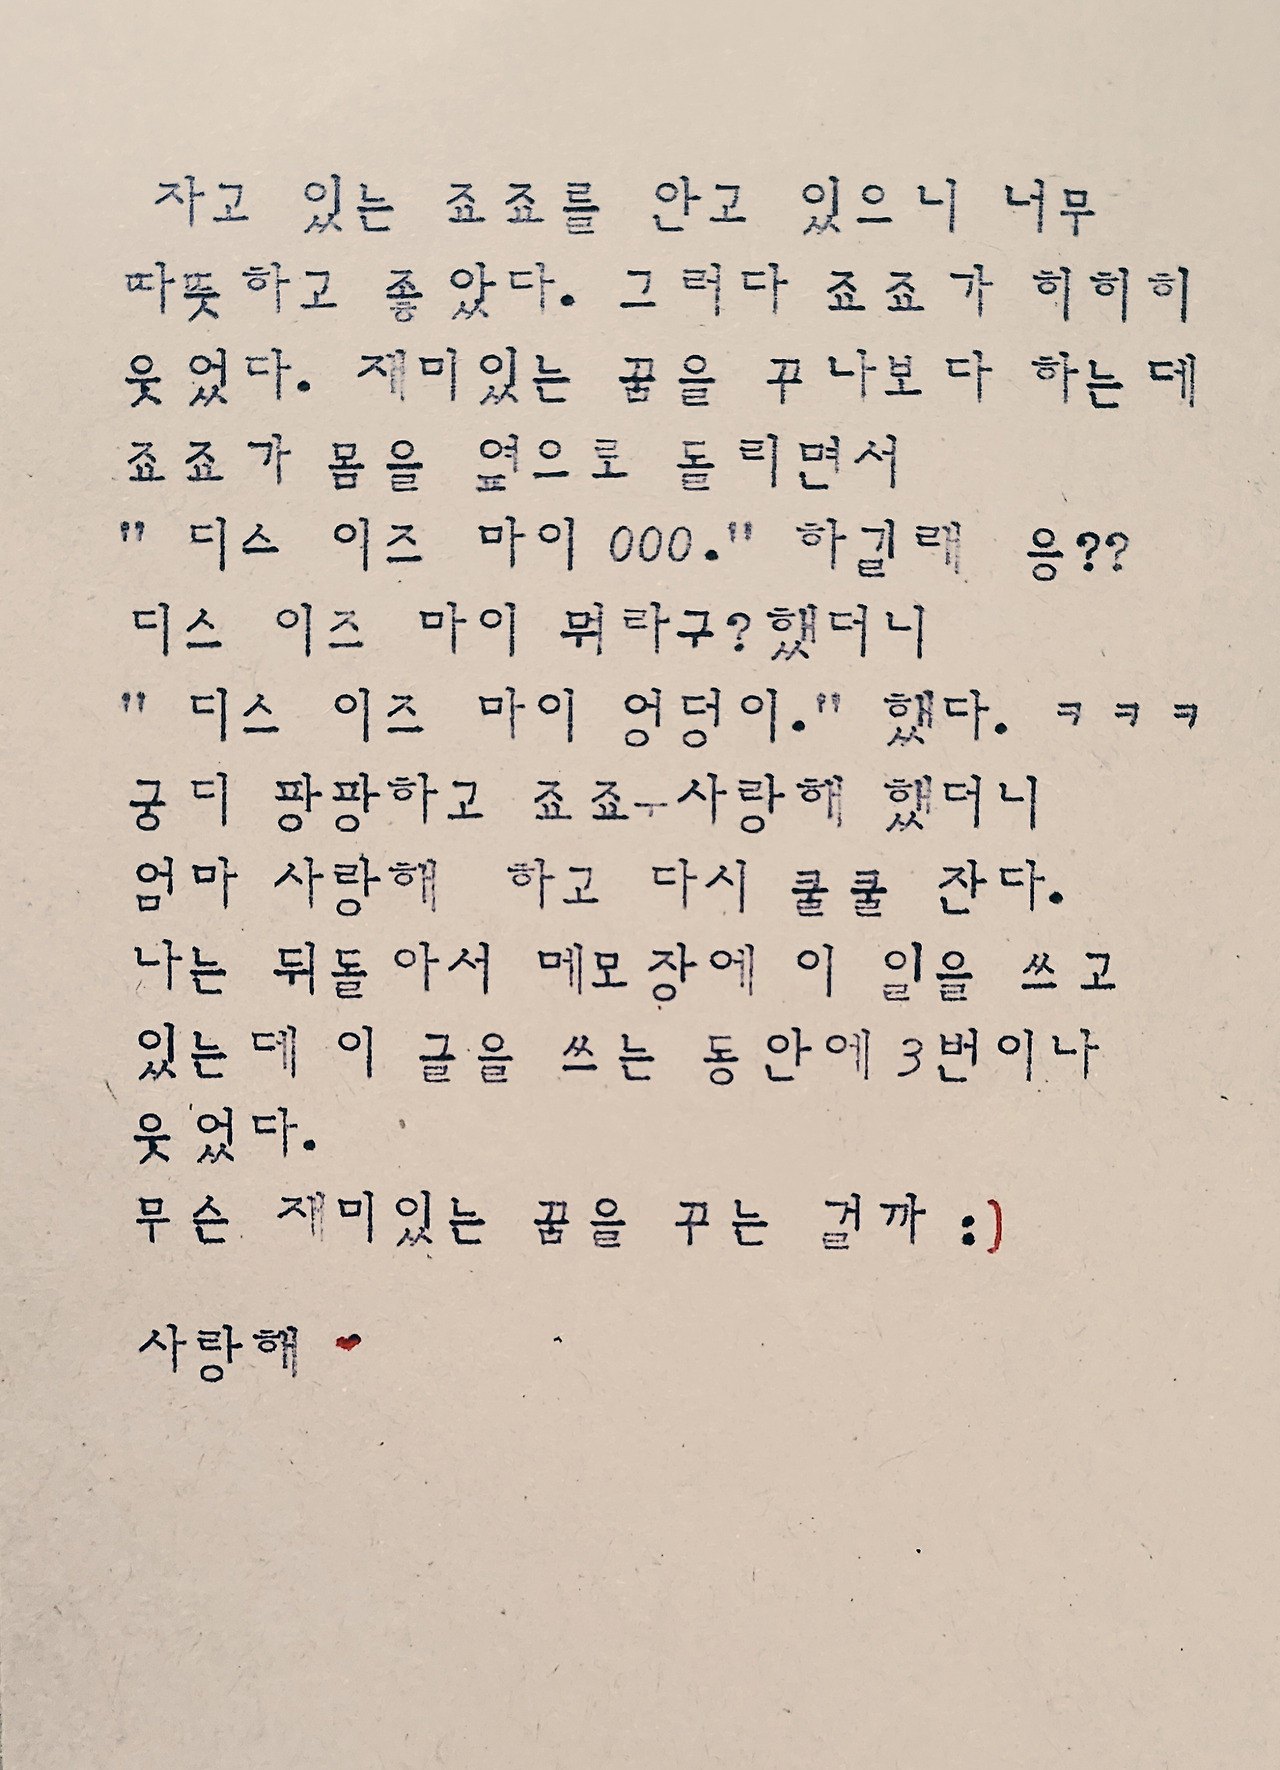 자고 있는 죠죠를 안고 있으니 너무
따뜻하고 좋았다. 그러다 죠죠가 히히히
웃었다. 재미있는 꿈을 꾸나보다 하는데
죠죠가 몸을 옆으로 돌리면서
" 디스 이즈 마이 000." 하길래 응??
디스 이즈 마이 뭐라구?했더니
" 디스 이즈 마이 엉덩이." 했다. ㅋㅋㅋ
궁디 팡팡하고 죠죠ㅜ사랑해 했더니
엄마 사랑해 하고 다시 쿨쿨 잔다.
나는 뒤돌아서 메모장에 이 일을 쓰고
있는데 이 글을 쓰는 동안에 3번이나
웃었다.
무슨 재미있는 꿈을 꾸는 걸까 :)
사랑해 ❤